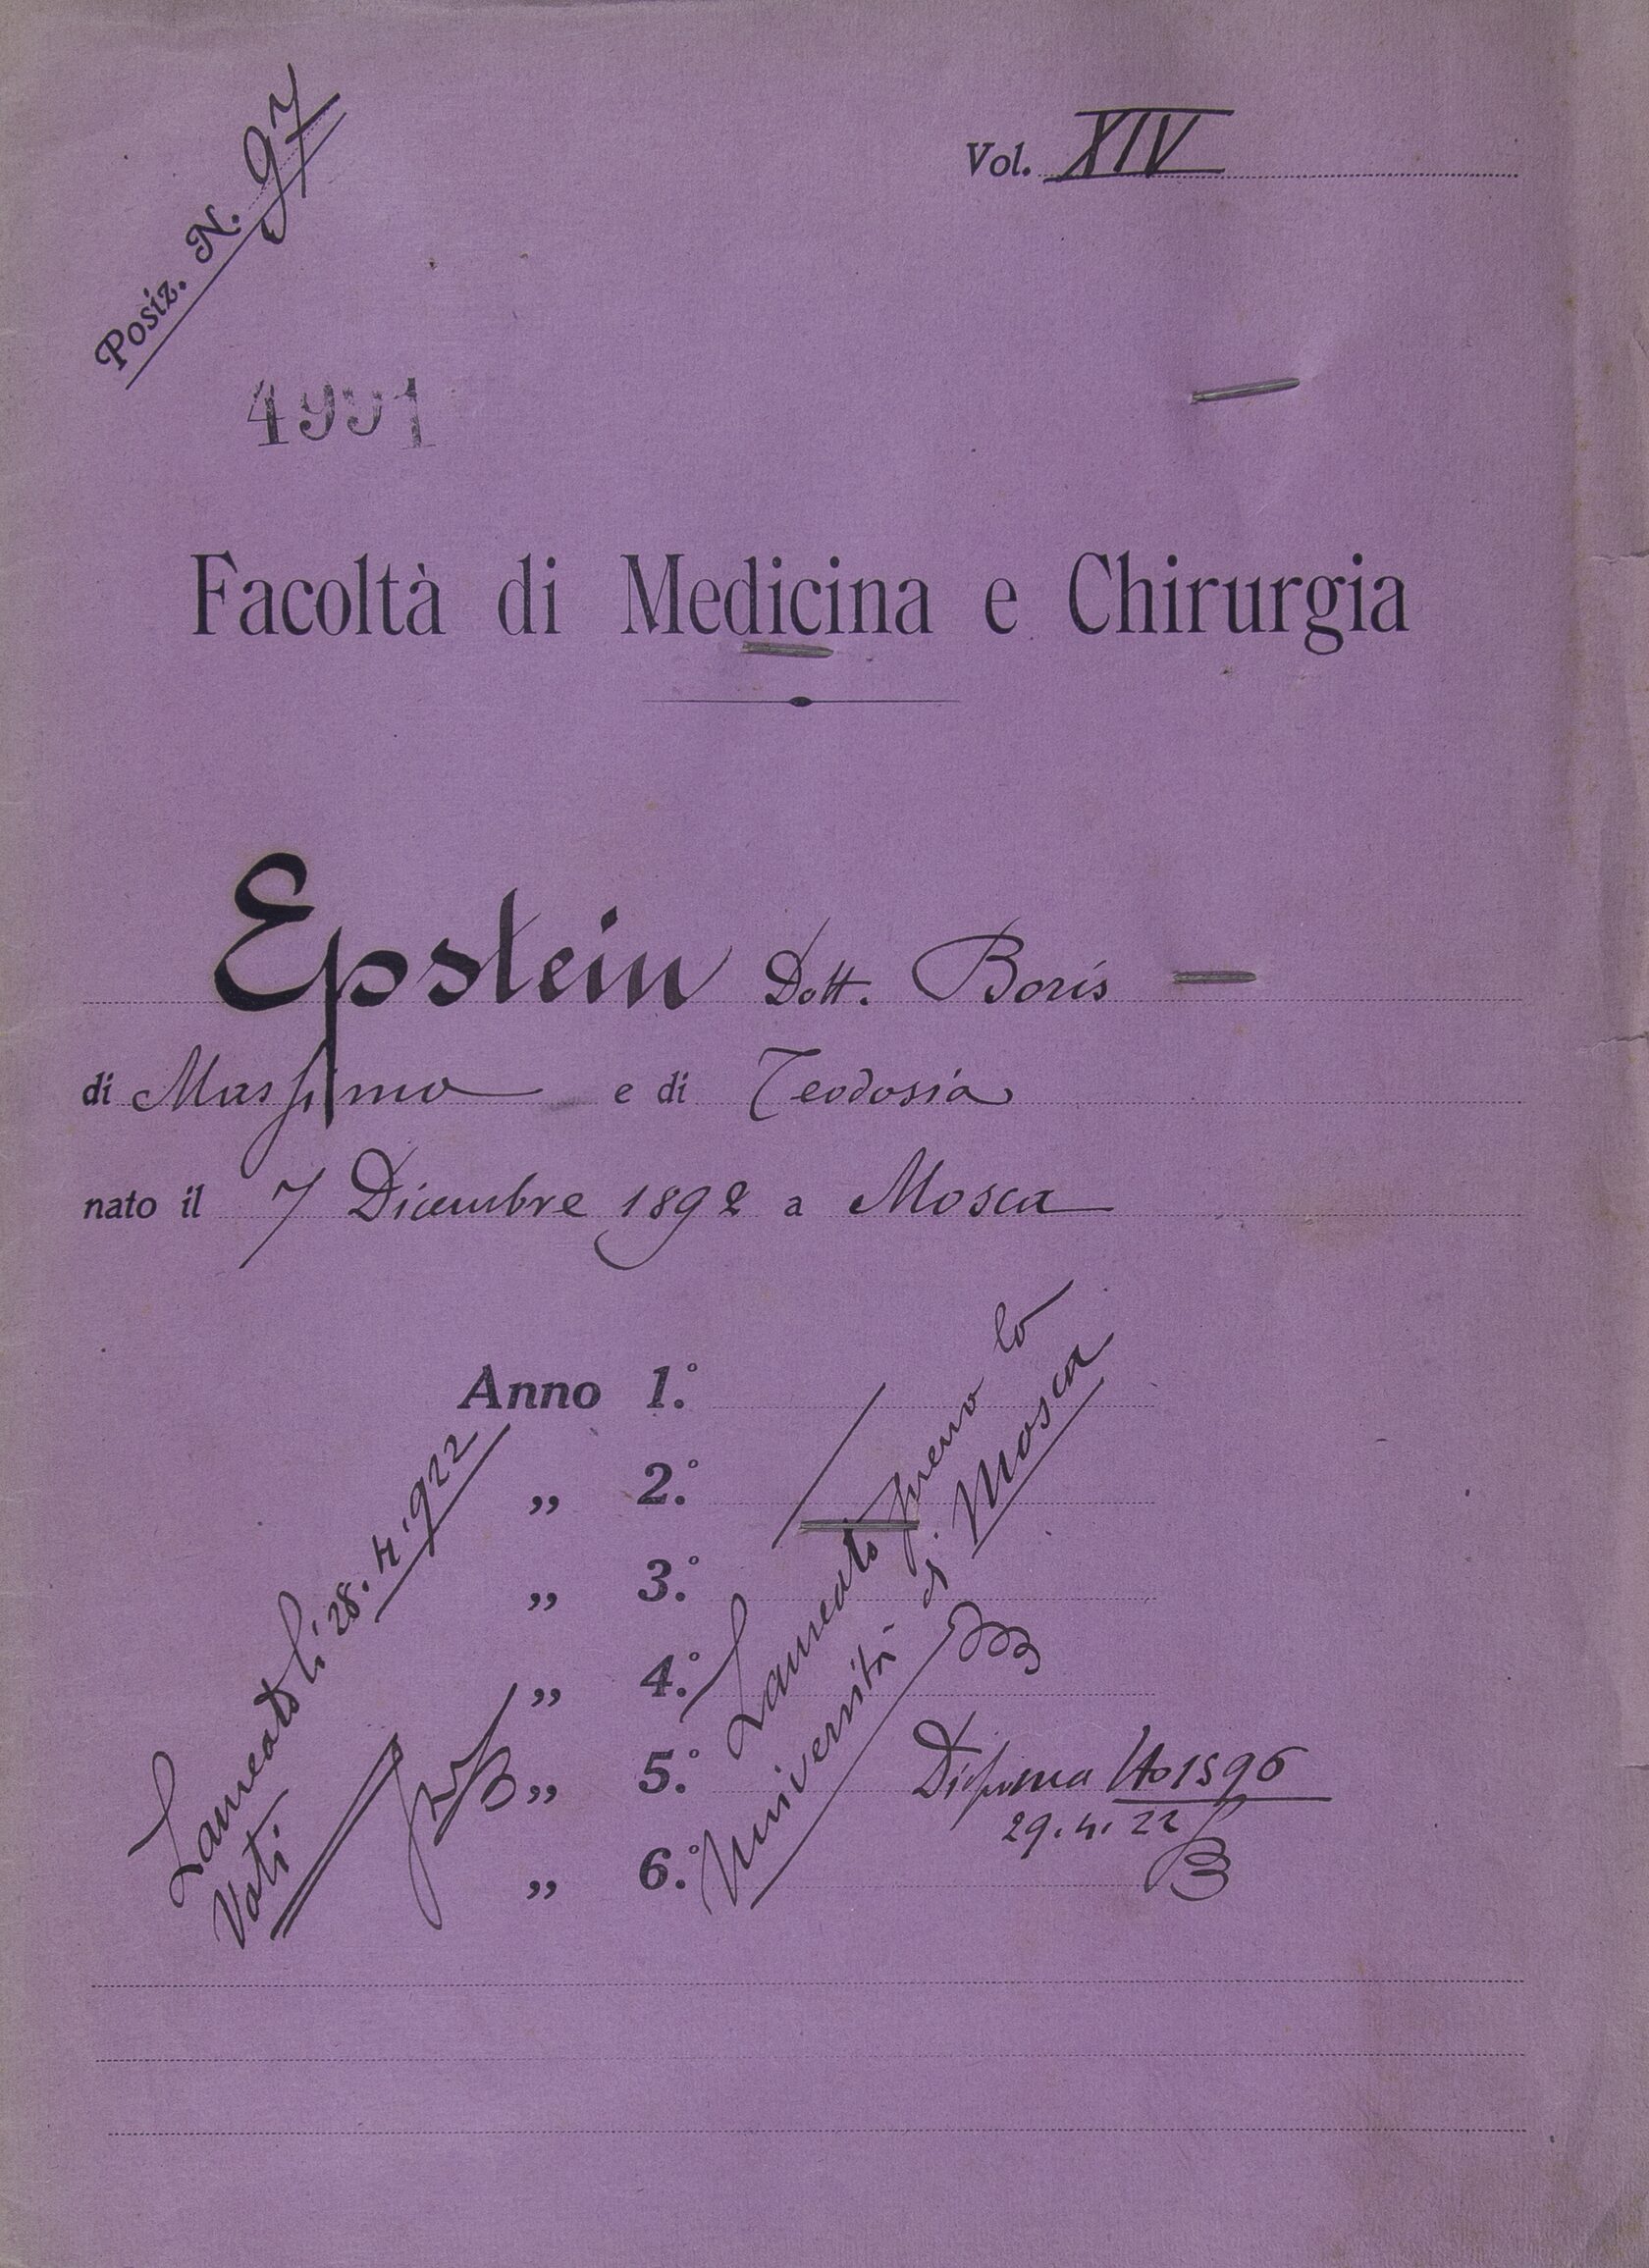 Posiz. N. 97
Vol. XIV
4991
Facoltà di Medicina e Chirurgia
Epstein Dott. Boris
di Massimo e di Teodosia
nato il 7 Dicembre 1892 a Mosca
Anno 1.°
„ 2.°
„ 3.°
„ 4.°
„ 5.°
„ 6.°
Laureato li 28.4.922
Voti
Laureato presso la
Università di Mosca
Diploma 1596
29.4.22